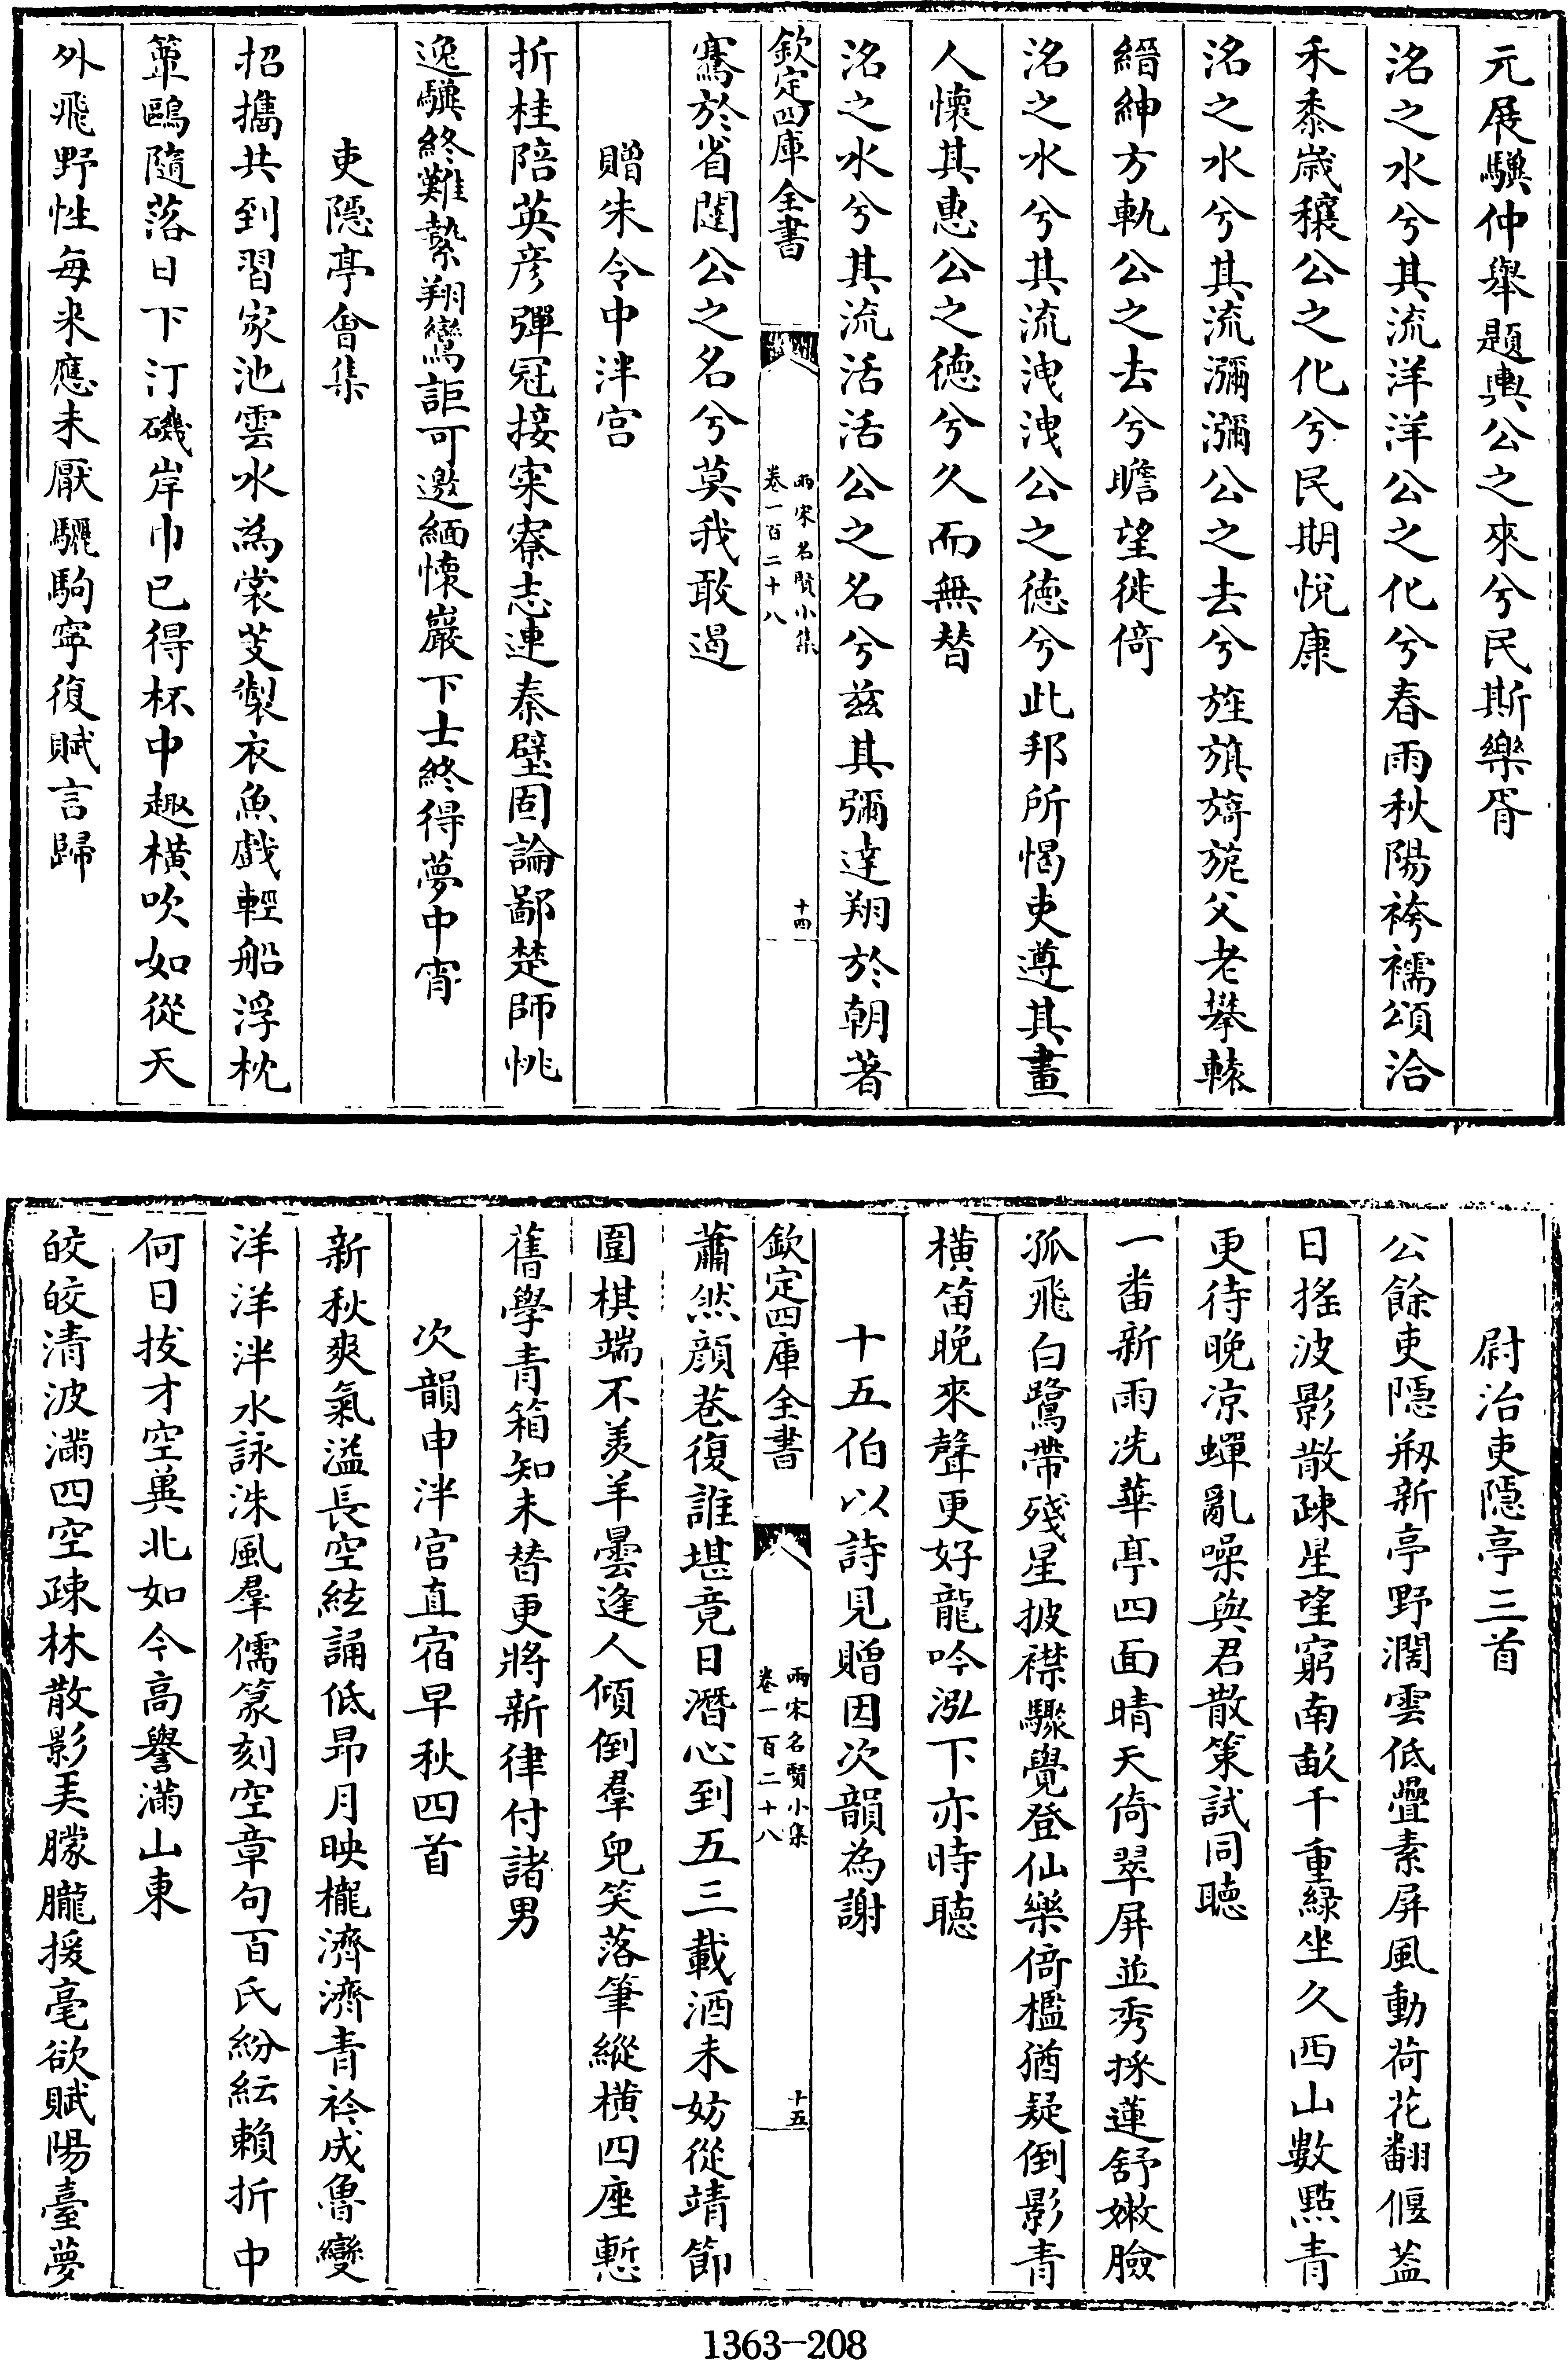 元展驥仲舉題輿公之來兮民斯樂胥
洺之水兮其流洋洋公之化兮春雨秋陽袴襦頌洽
禾黍歲穰公之化兮民期悅康
洺之水兮其流瀰瀰公之去兮旌旗旖旎父老攀轅
縉紳方軌公之去兮瞻望徙倚
洺之水兮其流洩洩公之德兮此邦所愒吏遵其畫
人懷其惠公之德兮久而無替
洺之水兮其流活活公之名兮兹其彌達翔於朝著
欽定四庫全書
兩宋名賢小集
卷一百二十八
十四
騫於省闥公之名兮莫我敢遏
贈朱令中泮宫
折桂陪英彦彈冠接寀寮志連秦璧固論鄙楚師恌
逸驥終難縶翔鸞詎可邀緬懷巖下士終得夢中宵
吏隱亭會集
招攜共到習家池雲水為裳芰製衣魚戲輕船浮枕
簟鷗隨落日下汀磯岸巾已得杯中趣橫吹如從天
外飛野性每來應未厭驪駒寧復賦言歸
尉治吏隱亭三首
公餘吏隱剏新亭野濶雲低疊素屏風動荷花翻偃葢
日搖波影散疎星望窮南畝千重緑坐久西山數點青
更待晚凉蟬亂噪與君散策試同聽
一番新雨洗華亭四面晴天倚翠屏並秀採蓮舒嫩臉
孤飛白鷺帶殘星披襟驟覺登仙樂倚檻猶疑倒影青
橫笛晚來聲更好龍吟泓下亦時聽
十五伯以詩見贈因次韻為謝
欽定四庫全書
兩宋名賢小集
卷一百二十八
十五
蕭然顔巷復誰堪竟日潛心到五三載酒未妨從靖節
圍棋端不羡羊曇逢人傾倒羣兒笑落筆縱橫四座慙
舊學青箱知未替更將新律付諸男
次韻申泮宫直宿早秋四首
新秋爽氣溢長空絃誦低昂月映櫳濟濟青衿成魯變
洋洋泮水詠洙風羣儒篆刻空章句百氏紛紜賴折中
何日拔才空兾北如今高譽滿山東
皎皎清波滿四空疎林散影美朦朧援毫欲賦陽臺夢
1363-208